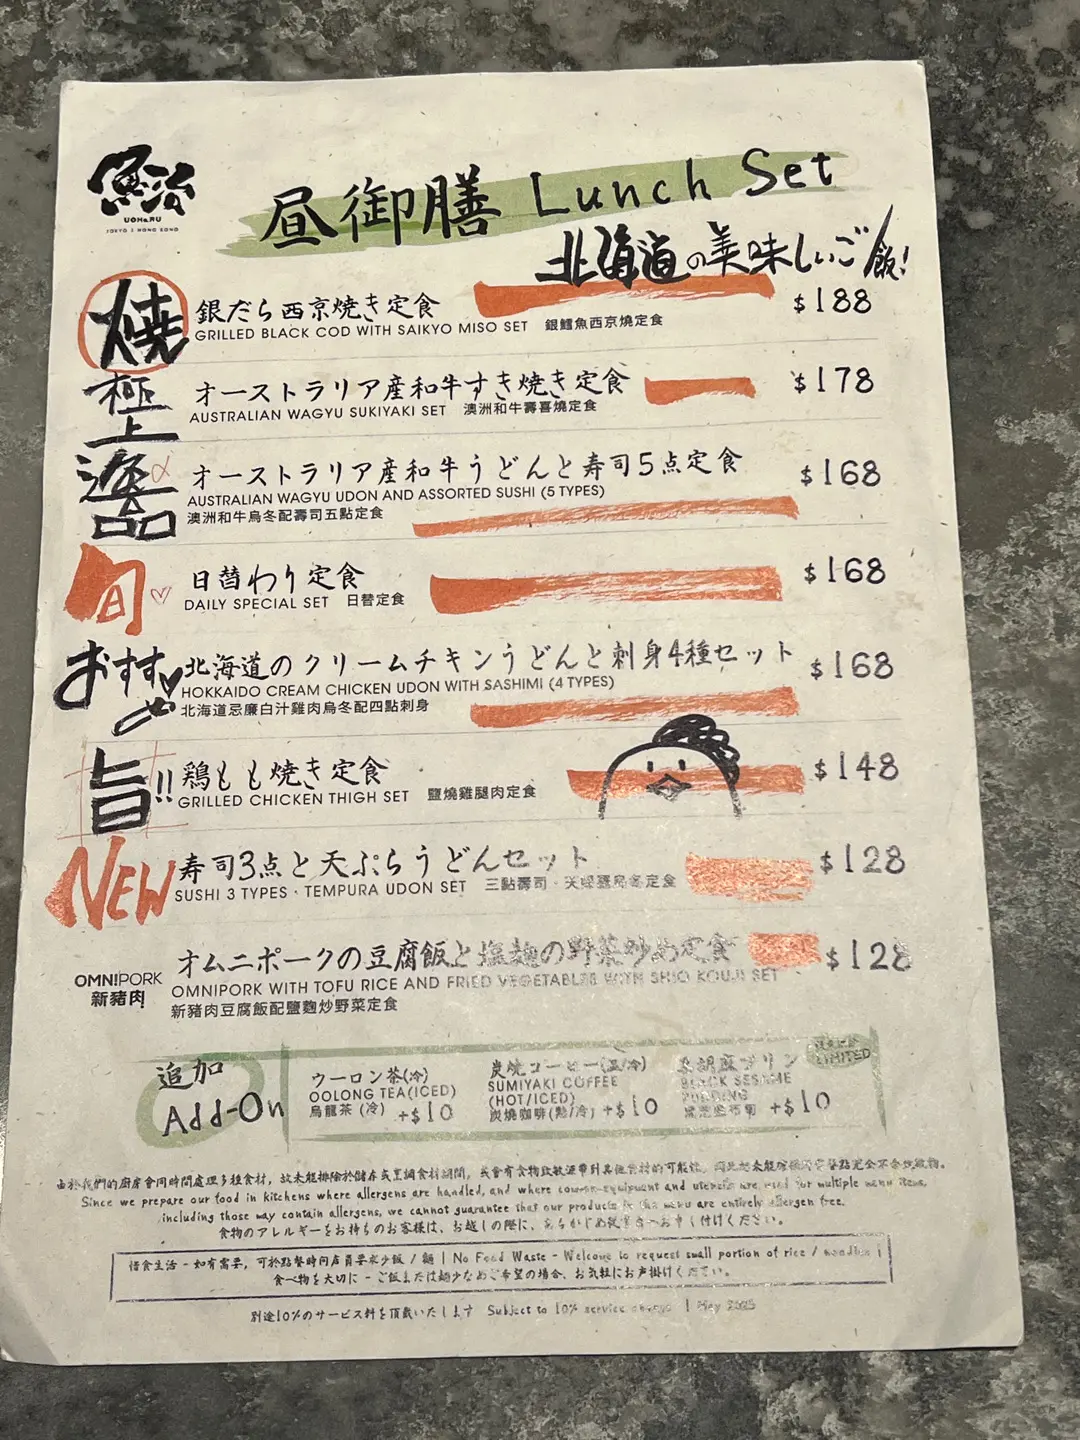 魚治
UOHARU
TOKYO | HONG KONG
昼御膳 Lunch Set
北海道の美味しいご飯!
焼
銀だら西京焼き定食 $188
GRILLED BLACK COD WITH SAIKYO MISO SET 銀鱈魚西京燒定食
極上
オーストラリア産和牛すき焼き定食 $178
AUSTRALIAN WAGYU SUKIYAKI SET 澳洲和牛壽喜燒定食
オーストラリア産和牛うどんと寿司5点定食 $168
AUSTRALIAN WAGYU UDON AND ASSORTED SUSHI (5 TYPES)
澳洲和牛烏冬配壽司五點定食
旬
日替わり定食 $168
DAILY SPECIAL SET 日替定食
おすすめ
北海道のクリームチキンうどんと刺身4種セット $168
HOKKAIDO CREAM CHICKEN UDON WITH SASHIMI (4 TYPES)
北海道忌廉白汁雞肉烏冬配四點刺身
旨!!
鶏もも焼き定食 $148
GRILLED CHICKEN THIGH SET 鹽燒雞腿肉定食
NEW
寿司3点と天ぷらうどんセット $128
SUSHI 3 TYPES・TEMPURA UDON SET 三點壽司・天婦羅烏冬定食
OMNIPORK
新豬肉
オムニポークの豆腐飯と塩麹の野菜炒め定食 $128
OMNIPORK WITH TOFU RICE AND FRIED VEGETABLES WITH SHIO KOUJI SET
新豬肉豆腐飯配鹽麴炒野菜定食
追加
Add-On
ウーロン茶(冷)
OOLONG TEA(ICED)
烏龍茶 (冷) +$10
炭焼コーヒー(温/冷)
SUMIYAKI COFFEE
(HOT/ICED)
炭燒咖啡(熱/冷) +$10
LIMITED
黒胡麻プリン
BLACK SESAME
PUDDING
黑芝麻布甸 +$10
由於我們的廚房會同時處理多種食材，故未能排除於儲存或烹調食材期間，或會有食物致敏源帶到其他食材的可能性。因此恕未能確保所有餐點完全不含致敏物。
Since we prepare our food in kitchens where allergens are handled, and where cooking equipment and utensils are used for multiple menu items,
including those may contain allergens, we cannot guarantee that our products in the menu are entirely allergen free.
食物のアレルギーをお持ちのお客様は、お越しの際に、あらかじめ従業員へお申し付けください。
惜食生活 - 如有需要，可於點餐時向店員要求少飯 / 麵 | No Food Waste - Welcome to request small portion of rice / noodles |
食べ物を大切に - ご飯または麺少なめご希望の場合、お気軽にお声掛けください。
別途10%のサービス料を頂戴いたします Subject to 10% service charge | May 2025